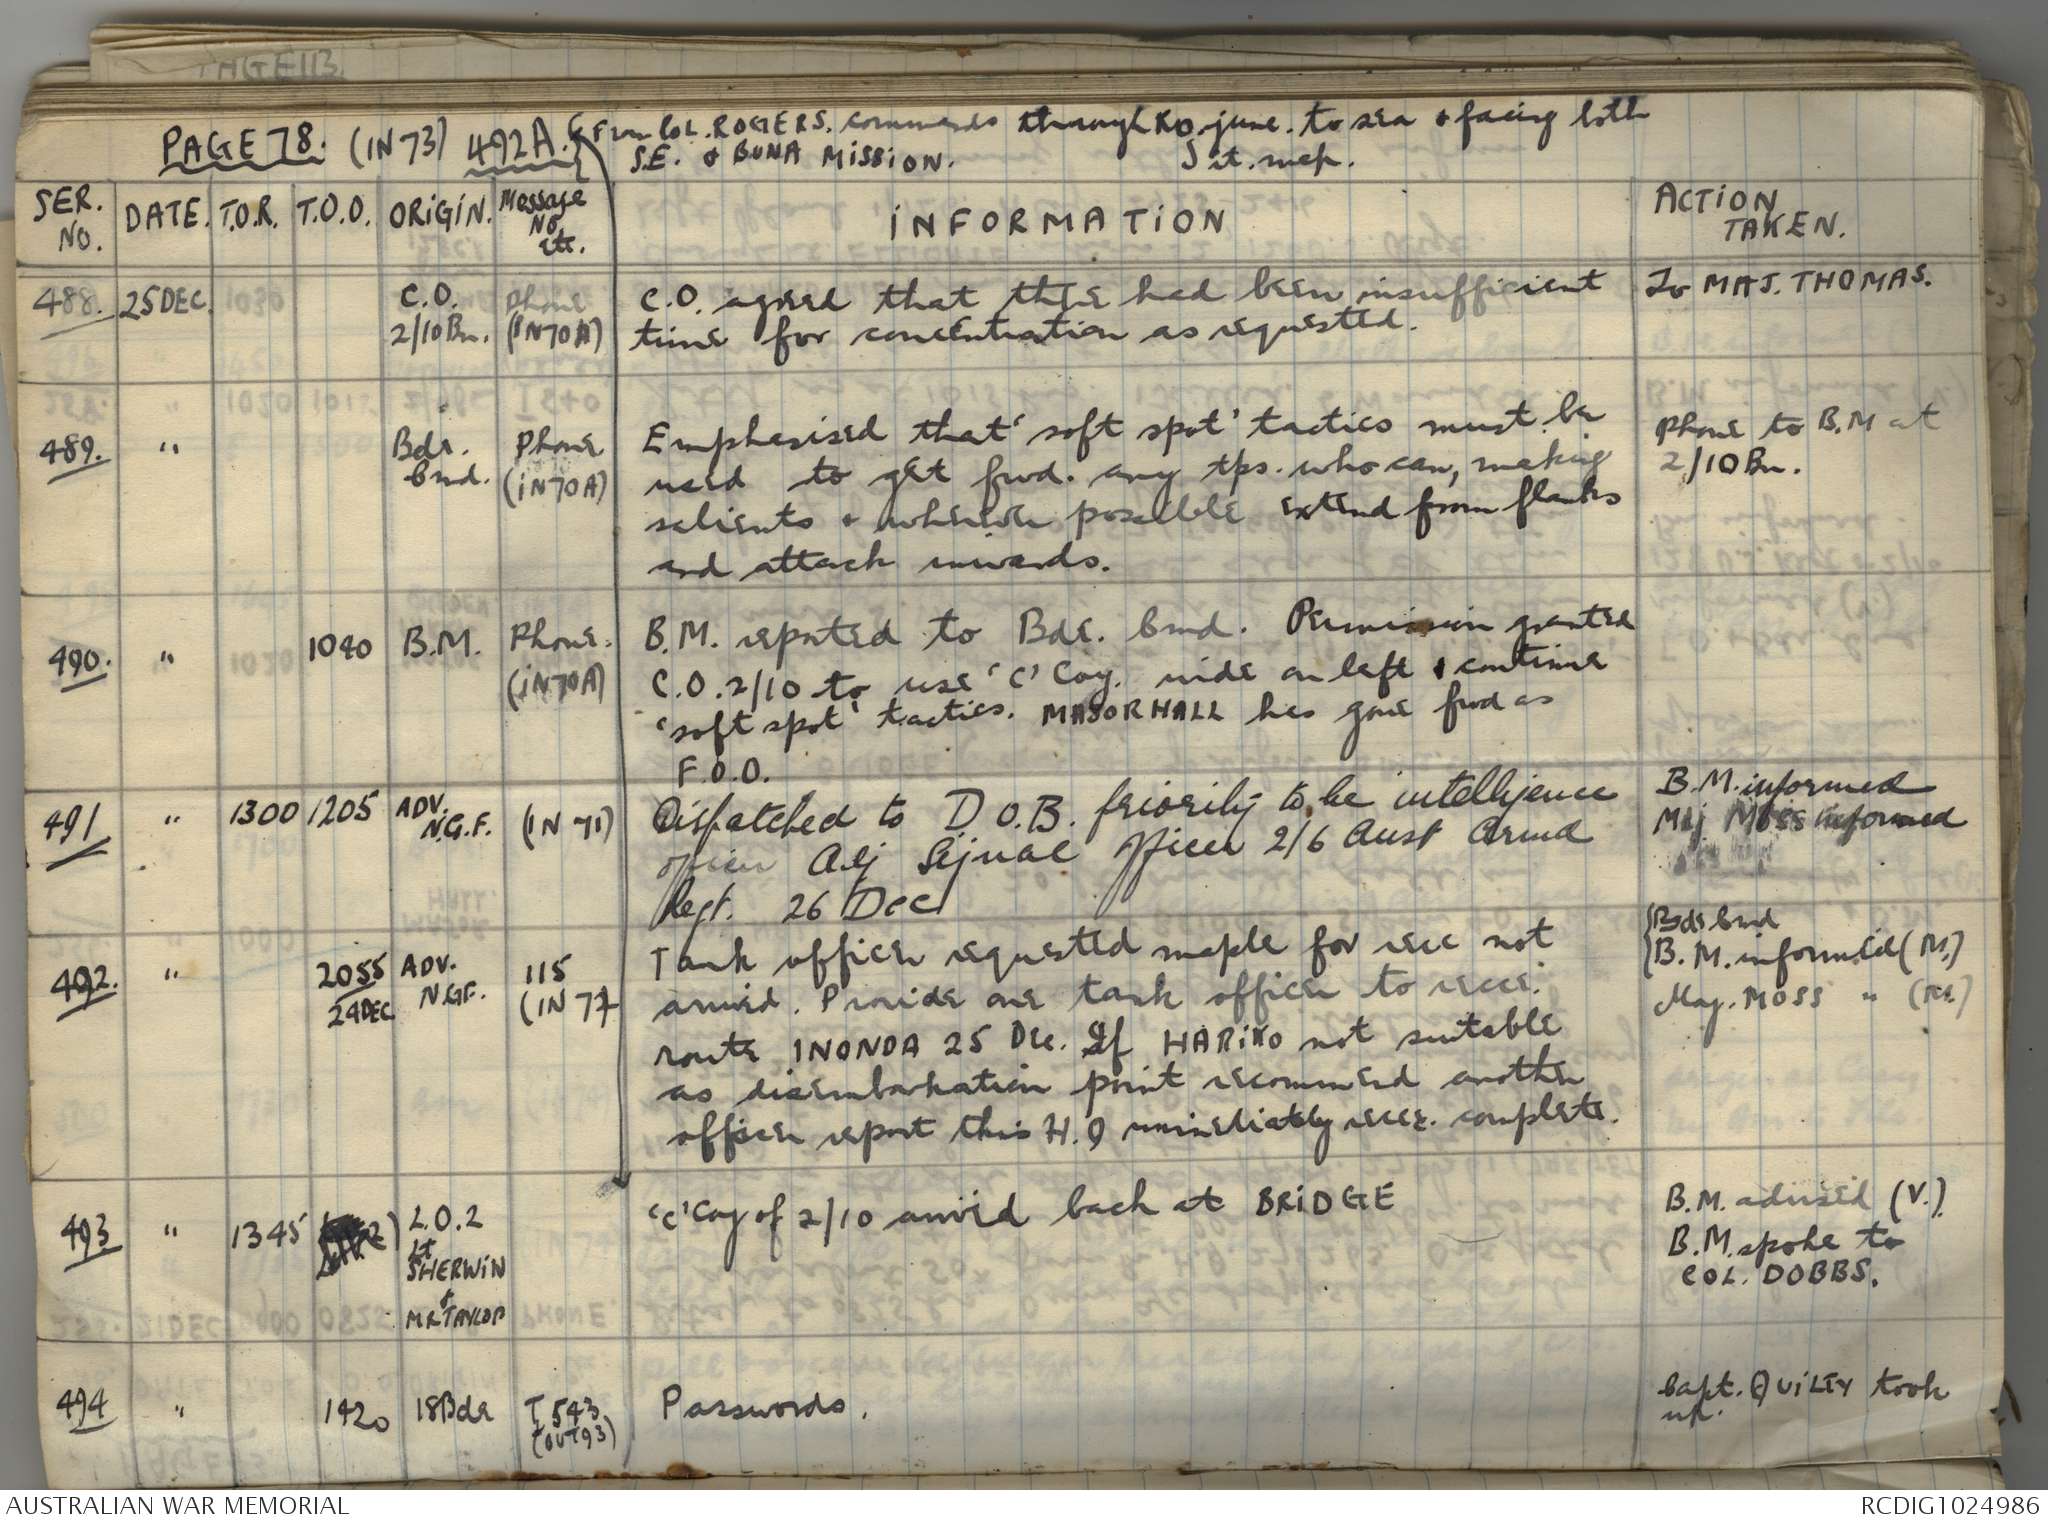 PAGE 113.
PAGE 78. (IN 73) 492A. From COL. ROGERS. commands through to sea & facing both
S.E. & BUNA MISSION. Sit. map.
SER. NO. DATE. T.O.R. T.O.O. ORIGIN. Message No etc. INFORMATION ACTION TAKEN.
488. 25 DEC. C.O. 2/10 Bn. Phone (IN 70A)
C.O. agreed that there had been insufficient
time for concentration as requested.
To MAJ. THOMAS.
489. " Bde. Cmd. Phone (IN 70A)
Emphasised that 'soft spot' tactics must be
used to get fwd. any tps. who can, making
salients & wherever possible extend from flanks
and attack inwards.
Phone to B.M at
2/10 Bn.
490. " 1040 B.M. Phone. (IN 70A)
B.M. reported to Bde. Cmd. Permission granted
C.O. 2/10 to use 'C' Coy. wide on left & continue
'soft spot' tactics. MAJOR HALL has gone fwd as
F.O.O.
491 " 1300 1205 ADV. N.G.F. (IN 71)
Dispatched to D O.B. priority to be intelligence
officer Adj Signal Officer 2/6 Aust Armd
Regt. 26 Dec
B.M. informed
Maj Moss informed
492. " 2055 24 DEC. ADV. N.G.F. 115 (IN 77
Tank officer requested maple for rec not
arrived. Provide one tank officer to recce.
route INONDA 25 Dec. If HARIKO not suitable
as disembarkation point recommend another
officer report this H.Q immediately recce. complete.
Bde Cmd
B.M. informed (M.)
Maj. MOSS " (M.)
493 " 1345 L.O.2 Lt SHERWIN & MR TAYLOR
'C' Coy of 2/10 arrived back at BRIDGE
B.M. advised (V.)
B.M. spoke to
COL. DOBBS.
494 " 1420 18 Bde T 543 (OUT 93)
Passwords.
Capt. QUILTY took
up.
AUSTRALIAN WAR MEMORIAL
RCDIG1024986